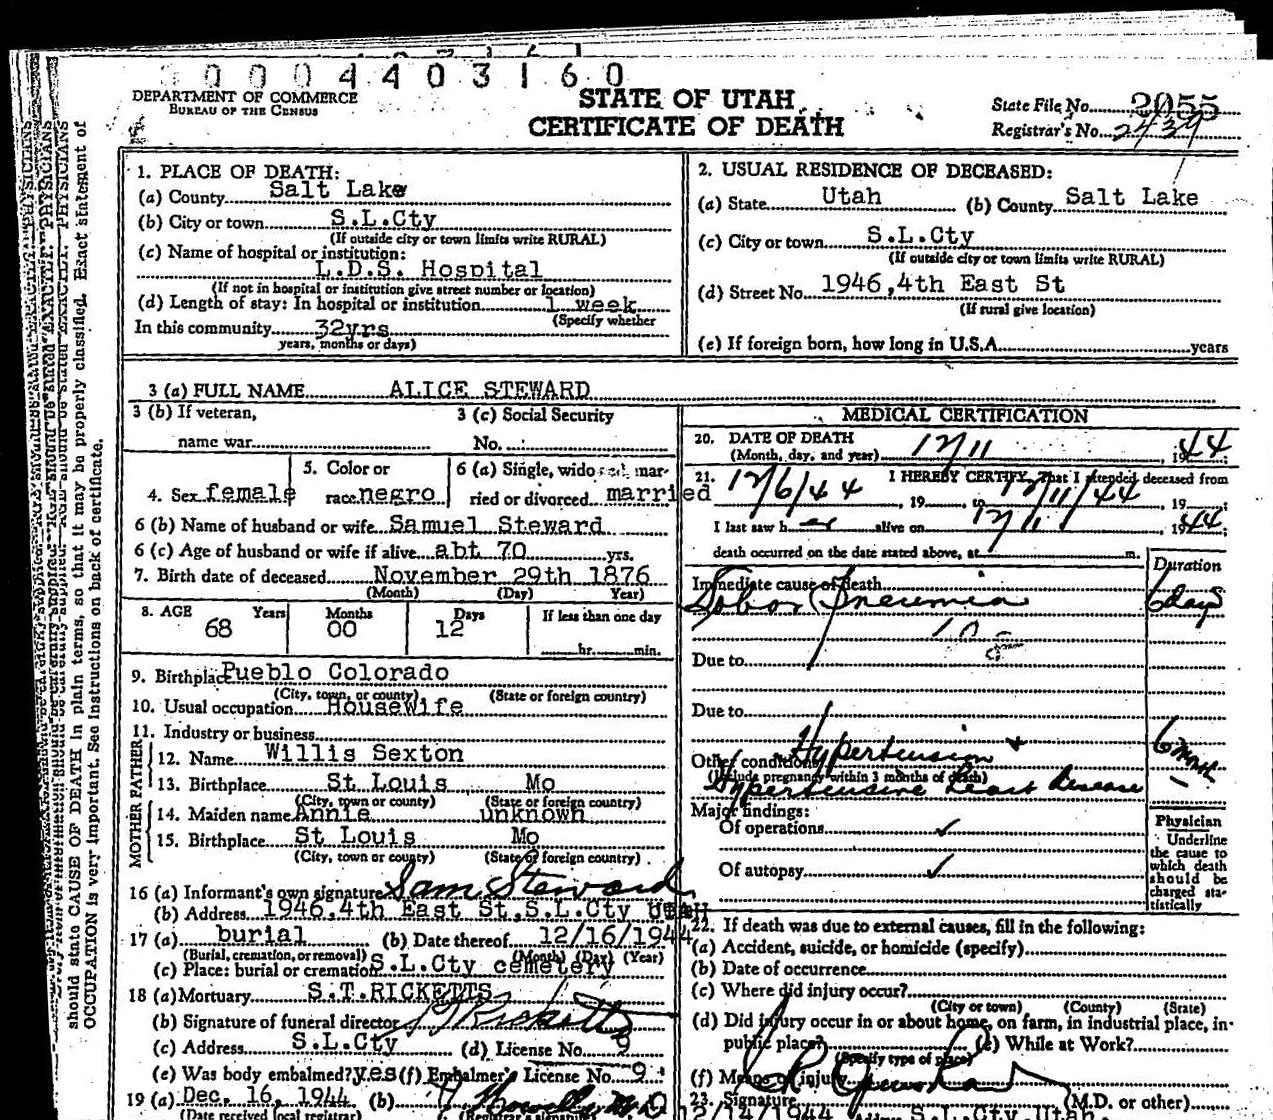 0 0 0 4 4 0 3 1 6 0
DEPARTMENT OF COMMERCE
BUREAU OF THE CENSUS
STATE OF UTAH
CERTIFICATE OF DEATH
State File No. 2055
Registrar's No. 2439
should state CAUSE OF DEATH in plain terms, so that it may be properly classified. Exact statement of
OCCUPATION is very important. See instructions on back of certificate.
1. PLACE OF DEATH:
(a) County Salt Lake
(b) City or town S.L.Cty
(If outside city or town limits write RURAL)
(c) Name of hospital or institution:
L.D.S. Hospital
(If not in hospital or institution give street number or location)
(d) Length of stay: In hospital or institution 1 week
(Specify whether
In this community 32yrs
years, months or days)
2. USUAL RESIDENCE OF DECEASED:
(a) State Utah (b) County Salt Lake
(c) City or town S.L.Cty
(If outside city or town limits write RURAL)
(d) Street No. 1946,4th East St
(If rural give location)
(e) If foreign born, how long in U.S.A. years
3 (a) FULL NAME ALICE STEWARD
3 (b) If veteran, 3 (c) Social Security
name war No.
4. Sex female 5. Color or race negro 6 (a) Single, widowed, married or divorced married
6 (b) Name of husband or wife Samuel Steward
6 (c) Age of husband or wife if alive abt 70 yrs.
7. Birth date of deceased November 29th 1876
(Month) (Day) Year)
8. AGE Years Months Days If less than one day
68 00 12 hr. min.
9. Birthplace Pueblo Colorado
(City, town, or county) (State or foreign country)
10. Usual occupation Housewife
11. Industry or business
FATHER
12. Name Willis Sexton
13. Birthplace St Louis Mo
(City, town or county) (State or foreign country)
MOTHER
14. Maiden name Annie unknown
15. Birthplace St Louis Mo
(City, town or county) (State or foreign country)
16 (a) Informant's own signature Sam Steward
(b) Address 1946,4th East St,S.L.Cty UTAH
17 (a) burial (b) Date thereof 12/16/1944
(Burial, cremation, or removal) (Month) (Day) (Year)
(c) Place: burial or cremation S.L.Cty cemetery
18 (a) Mortuary S.T.RICKETTS
(b) Signature of funeral director S T Ricketts
(c) Address S.L.Cty (d) License No. 9
(e) Was body embalmed? yes (f) Embalmer's License No. 9
19 (a) Dec. 16, 1944 (b)
(Date received local registrar)
MEDICAL CERTIFICATION
20. DATE OF DEATH
(Month, day, and year) 12/11, 1944
21. I HEREBY CERTIFY, That I attended deceased from
12/6/44, 19 to 12/11/44, 19
I last saw her alive on 12/11, 1944;
death occurred on the date stated above, at m.
Duration
Immediate cause of death
Lobar Pneumonia 6 days
Due to
Due to
Other conditions Hypertension + 6 mos
(Include pregnancy within 3 months of death)
Hypertensive Heart Disease
Major findings:
Of operations ✓
Of autopsy ✓
Physician
Underline
the cause to
which death
should be
charged sta-
tistically
22. If death was due to external causes, fill in the following:
(a) Accident, suicide, or homicide (specify)
(b) Date of occurrence
(c) Where did injury occur?
(City or town) (County) (State)
(d) Did injury occur in or about home, on farm, in industrial place, in
public place? (e) While at Work?
(Specify type of place)
(f) Means of injury
23. Signature (M.D. or other)
12/14/1944 Address S.L.Cty.Utah